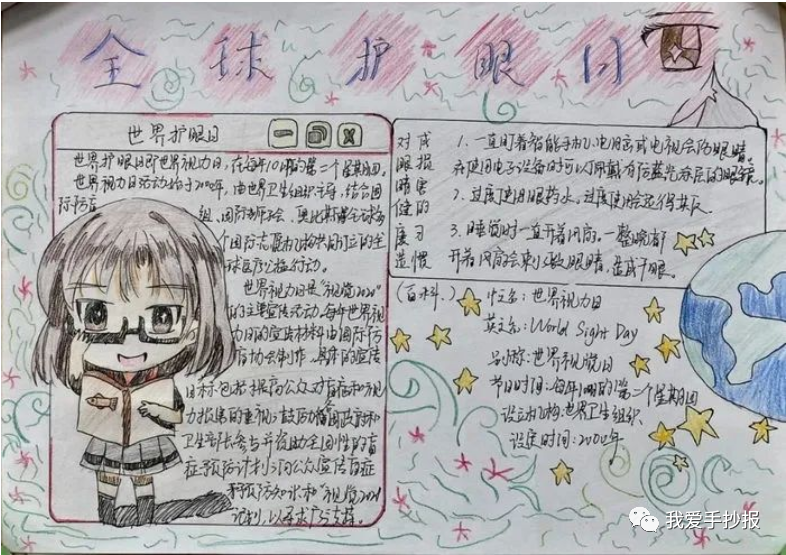 全球护眼日
世界护眼日
世界护眼日即世界视力日，在每年10月的第二个星期四。
世界视力日活动始于2000年，由世界卫生组织主导，结合国
际防盲
组、国际狮子会、奥比斯等全球多
个国际志愿机构共同订立的全
球医疗公益行动。
世界视力日是“视觉2020”
的主要宣传活动，每年世界视
力日的宣传材料由国际防
盲协会制作。具体的宣传
目标包括提高公众对盲症和视
力损害的重视；鼓励各国政府和
卫生部长参与并资助全国性的盲
症预防计划；向公众宣传盲症
预防知识和“视觉202
计划，以寻求广泛支持。
对眼睛健康造
成损害的习惯
1.一直盯着智能手机、电脑或电视会伤眼睛。
在使用电子设备时可以佩戴防蓝光涂层的眼镜。
2.过度使用眼药水，过度使用会适得其反。
3.睡觉时一直开着风扇。一整晚都
开着风扇会刺激眼睛，造成干眼。
（百科.）
中文名：世界视力日
英文名：World Sight Day
别称：世界视觉日
节日时间：每年10月的第二个星期四
设立机构：世界卫生组织.
设定时间：2000年
我爱手抄报